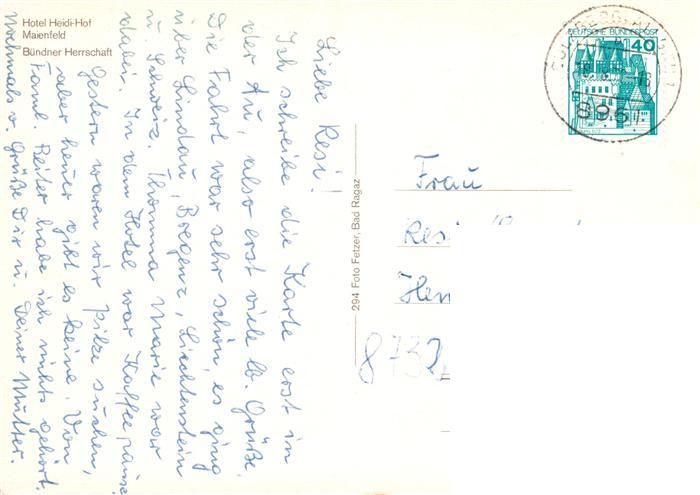 Hotel Heidi-Hof
Maienfeld
Bündner Herrschaft
Liebe Resi!
Ich schreibe die Karte erst in
der Au, also erst viele lb. Grüße.
Die Fahrt war sehr schön, es ging
über Lindau, Bregenz, Liechtenstein
u. Schweiz. Thomma Marie war
dabei. In dem Hotel war Kaffeepause
Gestern waren wir Pilze suchen,
aber heuer gibt es keine. Von
Faml. Reiter habe ich nichts gehört.
Nochmals v. Grüße Dir u. Deiner Mutter.
294 Foto Fetzer, Bad Ragaz
DEUTSCHE BUNDESPOST
40
Frau
Resi
8732